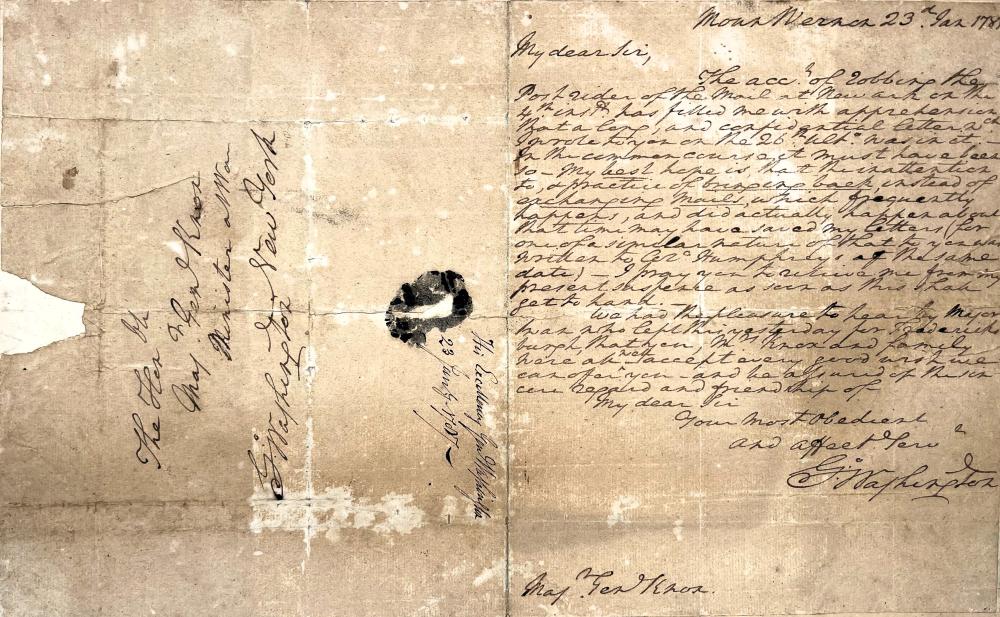 The Honble
Majr Genl Knox
Minister at War
New York
Go: Washington
His Excellency Genl Washington
23 Jany 1787
Mount Vernon 23d Jan 178
My dear Sir,
The acct of robbing the
Post rider of the Mail at Newark on the
4th instt has filled me with apprehension
that a long, and confidential letter wch
I wrote to you on the 26th Ulto was in it
In the common course it must have been
so — My best hope is, that the inattention
to, a practice of bringing back, instead of
exchanging Mails, which frequently
happens, and did actually happen about
that time may have saved my letters (for
one of a similar nature of that to you was
written to Colo Humphreys at the same
date) — I pray you to relieve me from my
present suspence as soon as this shall
get to hand.
We had the pleasure to hear by Major
who left this yesterday for Fredericks
burgh that you, Mrs Knox and family
were all well accept every good wish we
can offer you and be assured of the sin
cere regard and friendship of
My dear Sir
Your most Obedient
and affecte Servt
Go: Washington
Majr Genl Knox.